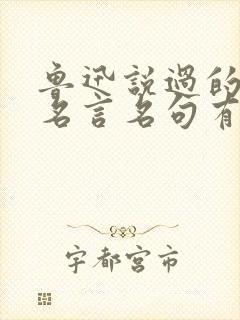 鲁迅說過的
名言名句有
宇都宮市